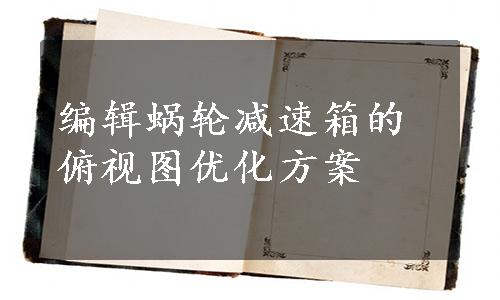 编辑蜗轮减速箱的
俯视图优化方案